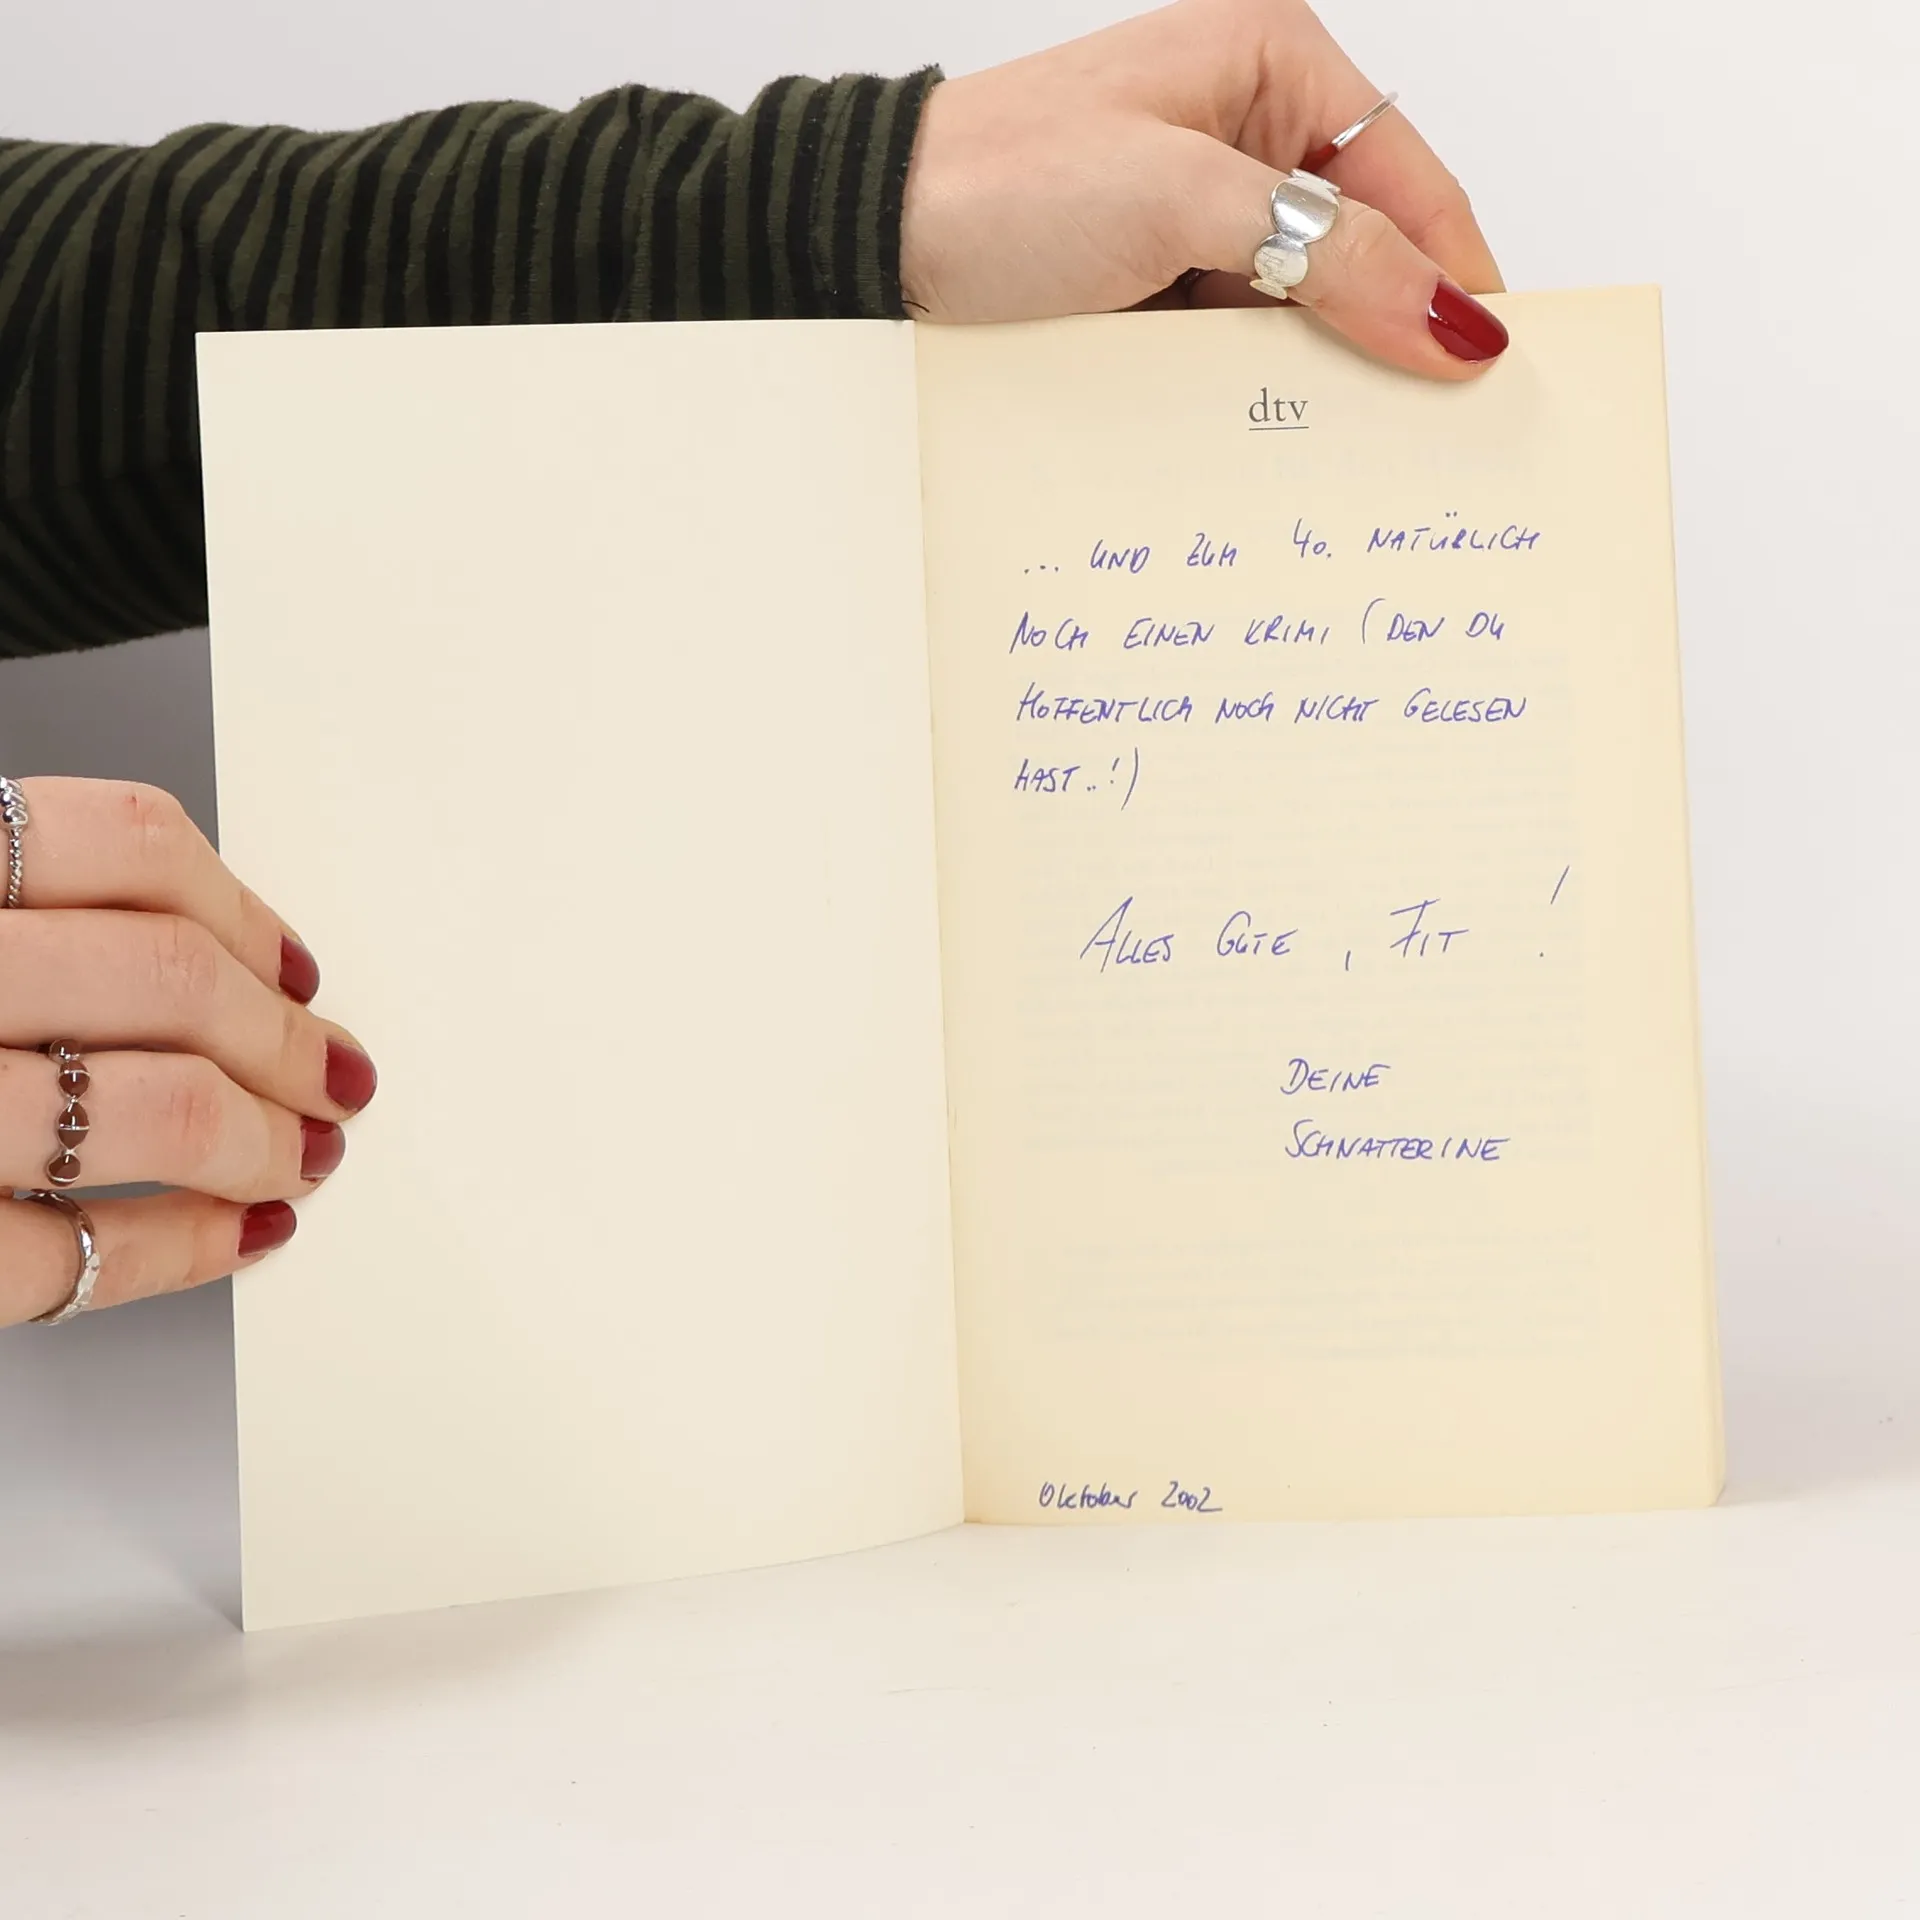 dtv
... UND ZUM 40. NATÜRLICH
NOCH EINEN KRIMI (DEN DU
HOFFENTLICH NOCH NICHT GELESEN
HAST..!)
ALLES GUTE, FIT!
DEINE
SCHNATTERINE
Oktober 2002